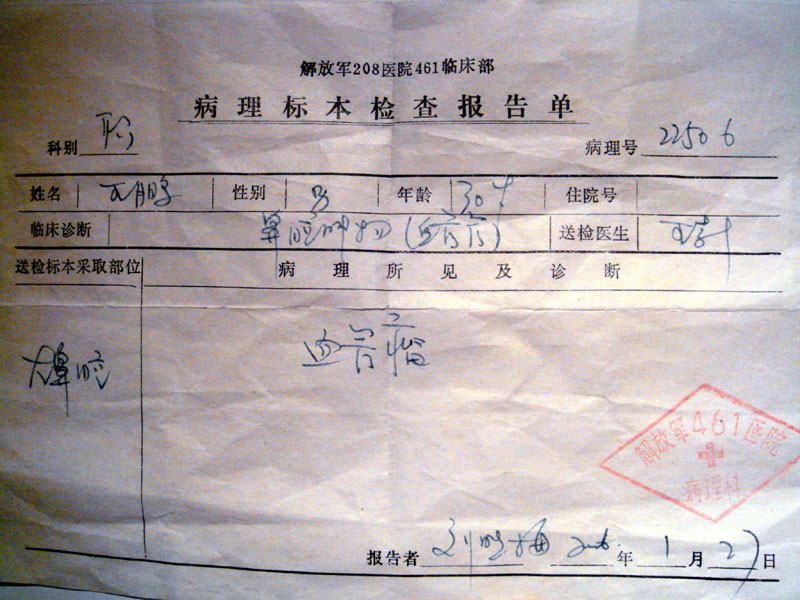 解放军208医院461临床部
病理标本检查报告单
科别 病理号 22506
姓名 性别 男 年龄 30 住院号
临床诊断 鼻腔肿物 送检医生
送检标本采取部位 病理所见及诊断
鼻腔 血管瘤
解放军461医院
病理科
报告者 2006年1月27日